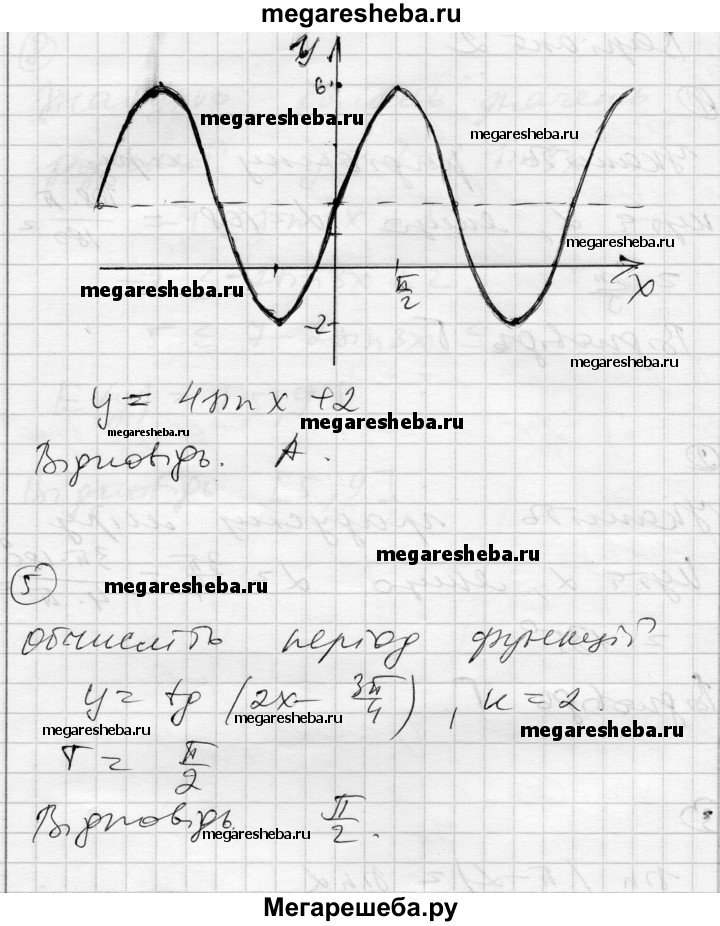 megaresheba.ru
y
6
megaresheba.ru
megaresheba.ru
megaresheba.ru
megaresheba.ru
π/2
x
-2
megaresheba.ru
y = 4 sin x + 2
megaresheba.ru
megaresheba.ru
Відповідь. А.
megaresheba.ru
5
megaresheba.ru
обчисліть період функції
y = tg (2x - 3π/4), k = 2.
megaresheba.ru
megaresheba.ru
megaresheba.ru
T = π/2
Відповідь. π/2.
megaresheba.ru
Мегарешеба.ру